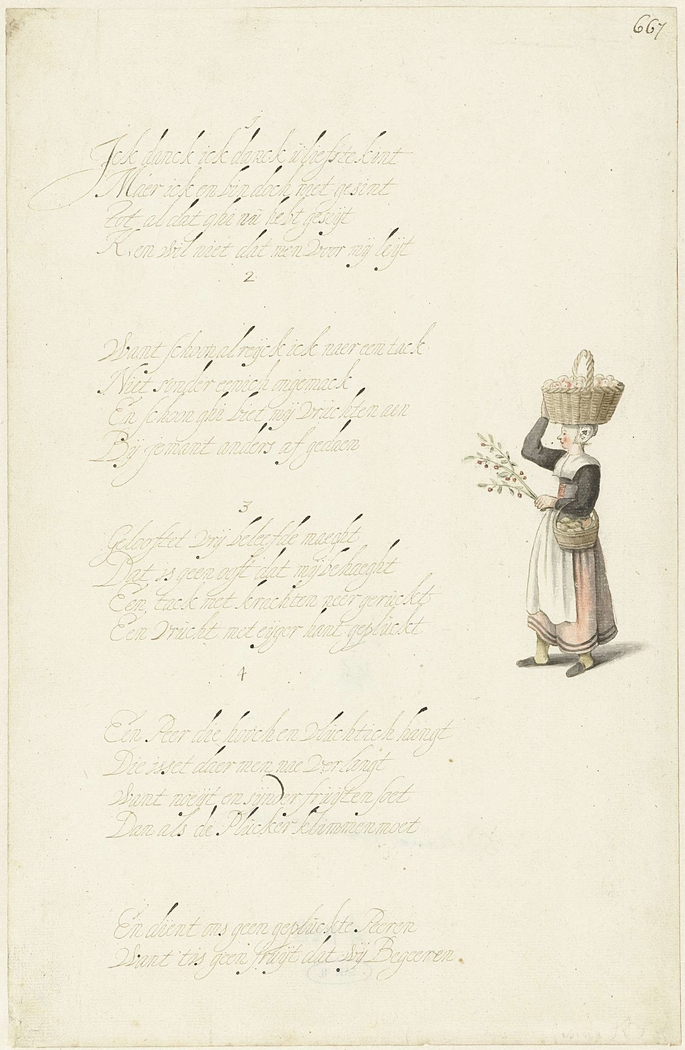 667
1
Ick danck ick danck u liefste kint
Maer ick en bin doch niet gesint
Tot al dat ghi nu hebt geseijt
K, en wil niet dat men voor mij leijt
2
Want schoon al reijck ick naer een tack
Niet sonder eenich ongemack
En schoon ghi biet mij vruchten aen
Bij jemant anders af gedaen
3
Gelooftet vrij beleefde maeght
Dat is geen ooft dat mij behaeght
Een, tack met krachten neer geruckt
Een vrucht met eijger hant gepluckt
4
Een Peer die hooch en vluchtich hangt
Die isset daer men nae verlangt
Want noeijt en sijnder fruijten soet
Dan als de Plucker klimmen moet
En dient ons geen gepluckte Peeren
Want tis geen fruijt dat Wij Begeeren.